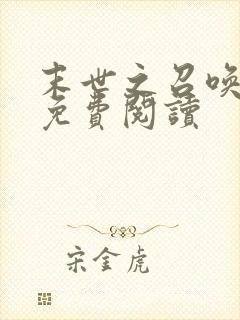 末世之召喚
免費閱讀
宋金虎